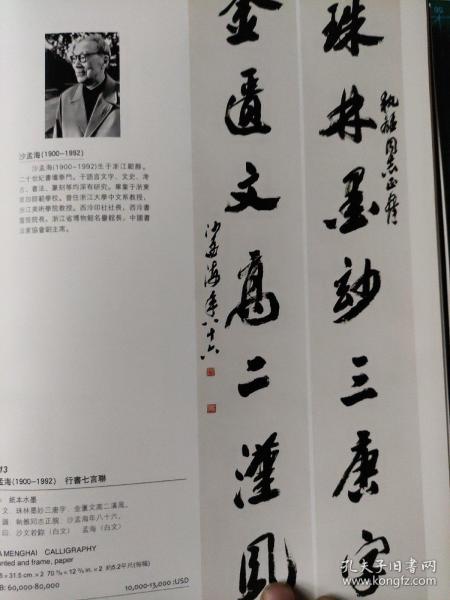 沙孟海(1900-1992)
沙孟海(1900-1992)生于浙江鄞縣。
二十世紀書壇泰鬥。于語言文字、文史、考
古、書法、篆刻等均深有研究。畢業于浙東
第四師範學校。曾任浙江大學中文系教授、
浙江美術學院教授、西泠印社社長、西泠書
畫院院長、浙江省博物館名譽館長、中國書
法家協會副主席。
珠林墨妙三唐字
金匱文高二漢風
沙孟海年八十六
13
孟海(1900-1992) 行書七言聯
紙本水墨
文 珠林墨妙三唐字,金匱文高二漢風。
同志正腕 沙孟海年八十六。
印 沙文若鉥(白文) 孟海(白文)
A MENGHAI CALLIGRAPHY
nted and frame, paper
× 31.5 cm. × 2 70 ⅞ × 12 ⅜ in. × 2 約5.2平尺(每幅)
B: 60,000-80,000 10,000-13,000 :USD
孔夫子旧书网